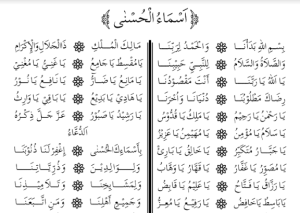 أَسْمَاءُ الْحُسْنٰى
بِسْمِ اللهِ بَدَأْنَا وَالْحَمْدُ لِرَبِّنَا
وَالصَّلَاةُ وَالسَّلَامُ لِلنَّبِيِّ حَبِيْبِنَا
يَا اَللهُ يَا رَبَّنَا أَنْتَ مَقْصُوْدُنَا
رِضَاكَ مَطْلُوْبُنَا دُنْيَانَا وَأُخْرَانَا
يَا رَحْمٰنُ يَا رَحِيْمُ يَا مَلِكُ يَا قُدُّوْسُ
يَا سَلَامُ يَا مُؤْمِنُ يَا مُهَيْمِنُ يَا عَزِيْزُ
يَا جَبَّارُ يَا مُتَكَبِّرُ يَا خَالِقُ يَا بَارِئُ
يَا مُصَوِّرُ يَا غَفَّارُ يَا قَهَّارُ يَا وَهَّابُ
يَا رَزَّاقُ يَا فَتَّاحُ يَا عَلِيْمُ يَا قَابِضُ
يَا بَاسِطُ يَا خَافِضُ يَا رَافِعُ يَا مُعِزُّ
مَالِكَ الْمُلْكِ ذَا الْجَلَالِ وَالْإِكْرَامِ
يَا مُقْسِطُ يَا جَامِعُ يَا غَنِيُّ يَا مُغْنِيْ
يَا مَانِعُ يَا ضَارُّ يَا نَافِعُ يَا نُوْرُ
يَا هَادِيْ يَا بَدِيْعُ يَا بَاقِيْ يَا وَارِثُ
يَا رَشِيْدُ يَا صَبُوْرُ عَزَّ جَلَّ ذِكْرُهُ
اَلدُّعَاءُ
بِأَسْمَاءِكَ الْحُسْنٰى إِغْفِرْ لَنَا ذُنُوْبَنَا
وَلِوَالِدِيْنَا وَذُرِّيَّاتِنَا
وَلِمَشَايِخِنَا
وَجَمِيْعِ أَهْلِنَا